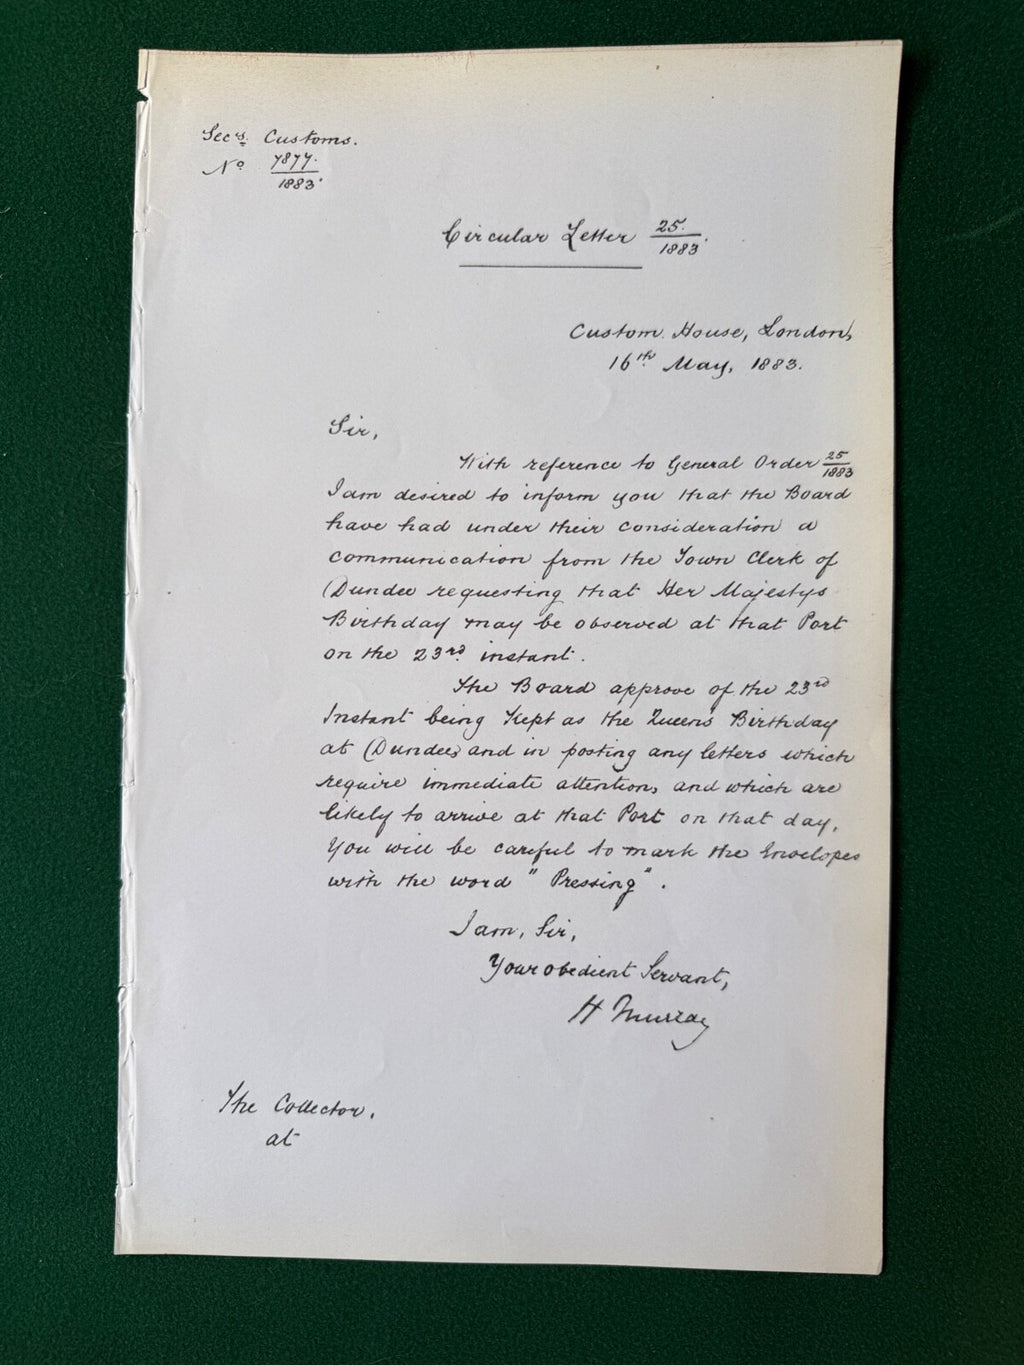 Secys. Customs.
No 7877/1883.
Circular Letter 25/1883.
Custom House, London,
16th May, 1883.
Sir,
With reference to General Order 25/1883
I am desired to inform you that the Board
have had under their consideration a
communication from the Town Clerk of
Dundee requesting that Her Majestys
Birthday may be observed at that Port
on the 23rd instant.
The Board approve of the 23rd
Instant being Kept as the Queen's Birthday
at Dundee, and in posting any letters which
require immediate attention, and which are
likely to arrive at that Port on that day,
you will be careful to mark the Envelopes
with the word "Pressing".
I am, Sir,
Your obedient Servant,
H Murray
The Collector,
at